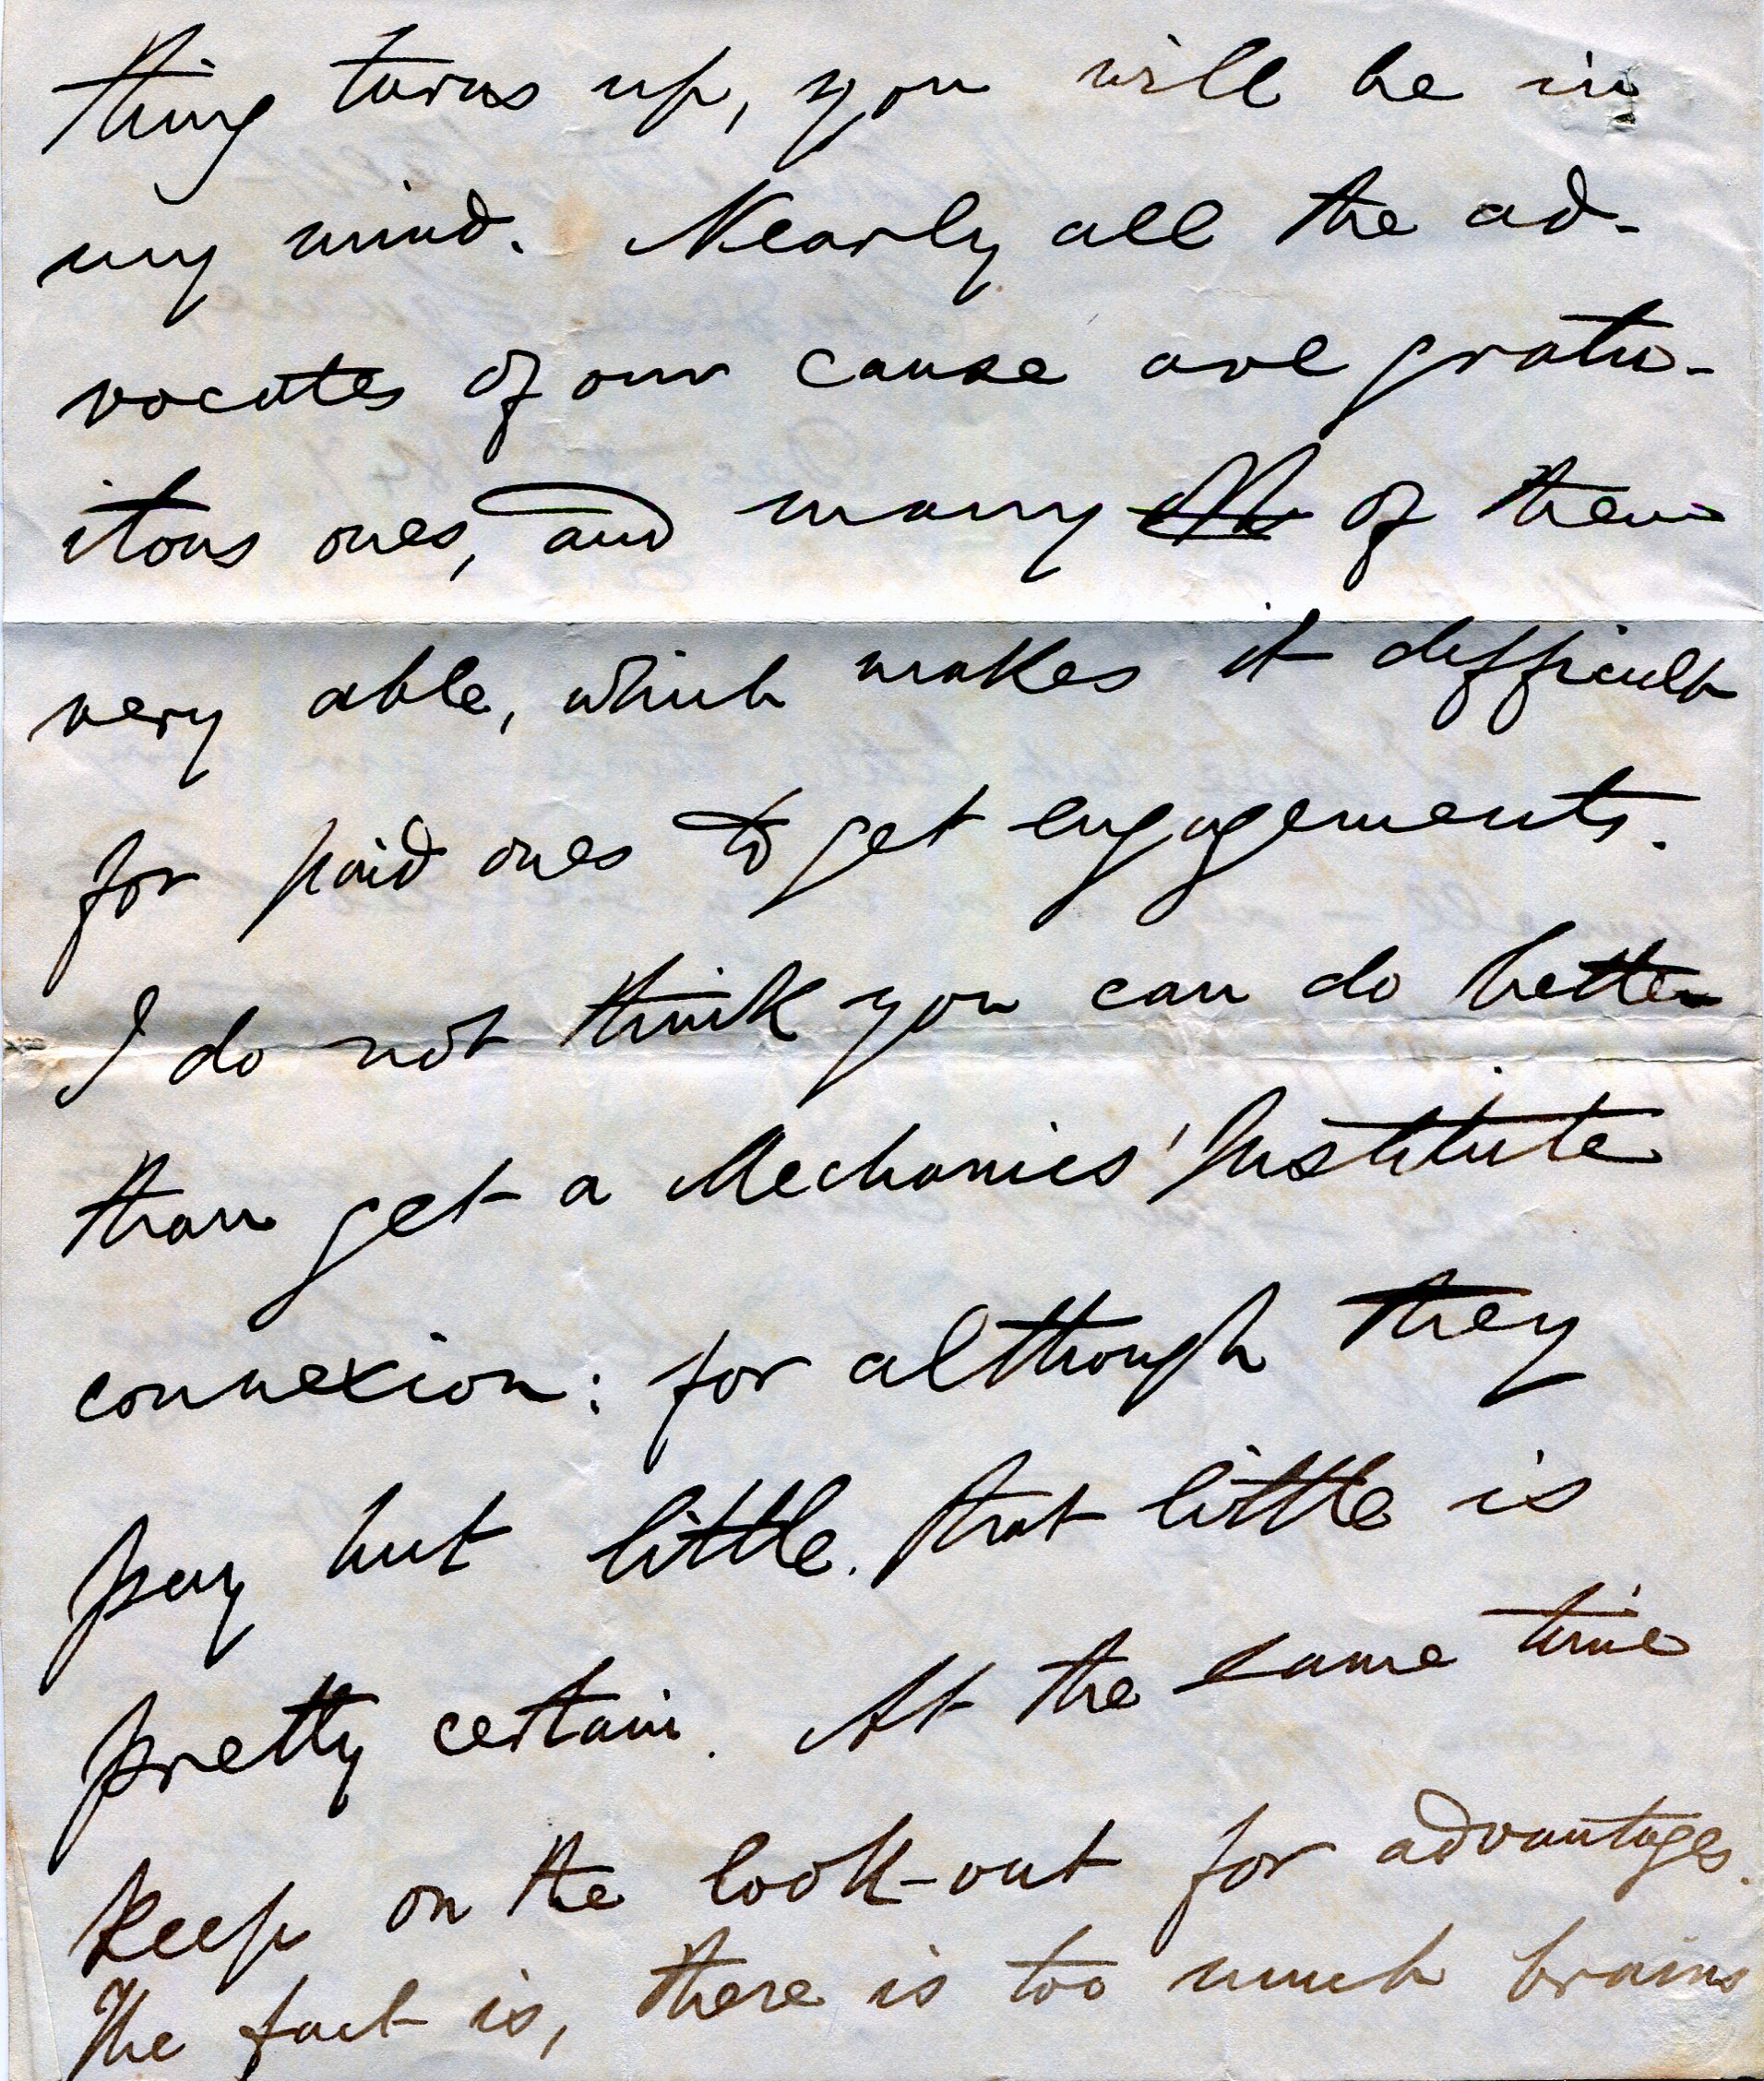 thing turns up, you will be in
my mind. Nearly all the ad-
vocates of our cause are gratu-
itous ones, and many of them
very able, which makes it difficult
for paid ones to get engagements.
I do not think you can do better
than get a Mechanics' Institute
connexion: for although they
pay but little. that little is
pretty certain. At the same time
keep on the look-out for advantages.
The fact is, there is too much brains